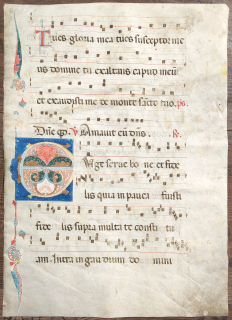 Tu es gloria mea tu es susceptor me
us domine tu exaltans caput meū
et exaudisti me de monte sc̄to tuo. ps.
Dn̄e qd. V Clamavit cū dn̄s. R.
Euge serve bo ne et fide
lis quia in pauca fuisti
fide lis supra multa te consti tu
am. Intra in gaudium do mini